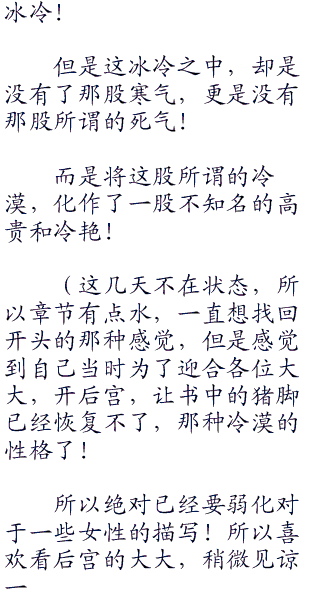 冰冷！
但是这冰冷之中，却是
没有了那股寒气，更是没有
那股所谓的死气！
而是将这股所谓的冷
漠，化作了一股不知名的高
贵和冷艳！
（这几天不在状态，所
以章节有点水，一直想找回
开头的那种感觉，但是感觉
到自己当时为了迎合各位大
大，开后宫，让书中的猪脚
已经恢复不了，那种冷漠的
性格了！
所以绝对已经要弱化对
于一些女性的描写！所以喜
欢看后宫的大大，稍微见谅
一